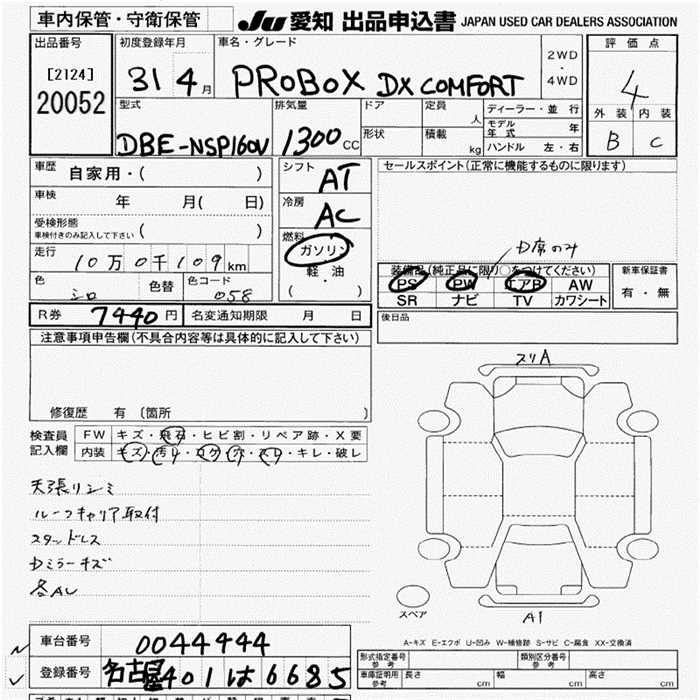 車内保管・守衛保管
JU 愛知 出品申込書 JAPAN USED CAR DEALERS ASSOCIATION
出品番号
[2124]
20052
初度登録年月
31 4 月
車名・グレード
PROBOX DX COMFORT
2WD
・
4WD
評価点
4
外装 内装
B C
型式
DBE-NSP160V
排気量
1300 CC
ドア
形状
定員
人
積載
kg
ディーラー・並行
モデル年式 年
ハンドル 左・右
車歴
自家用・( )
車検
年 月( 日)
受検形態
車検付きのみ記入して下さい ( )
走行
10万0千109 km
色
シロ
色替
色コード
058
シフト
AT
冷房
AC
燃料
ガソリン
軽・油
( )
セールスポイント(正常に機能するものに限ります)
D席のみ
装備品(純正品に限り○をつけてください)
PS PW エアB AW
SR ナビ TV カワシート
新車保証書
有・無
R券 7440 円
名変通知期限 月 日
後日品
注意事項申告欄(不具合内容等は具体的に記入して下さい)
修復歴 有 (箇所 )
検査員
記入欄
FW キズ・飛石・ヒビ割・リペア跡・X要
内装 キズ・汚れ・コゲ・穴・スレ・キレ・破レ
天張リシミ
ルーフキャリア取付
スタッドレス
Dミラーキズ
各AU
スリA
スペア
A1
A-キズ E-エクボ U-凹み W-補修跡 S-サビ C-腐食 XX-交換済
車台番号
0044444
登録番号
名古屋 401 は 6685
形式指定番号
参考
類別区分番号
参考
車庫証明用
参考
長さ cm
幅 cm
高さ cm